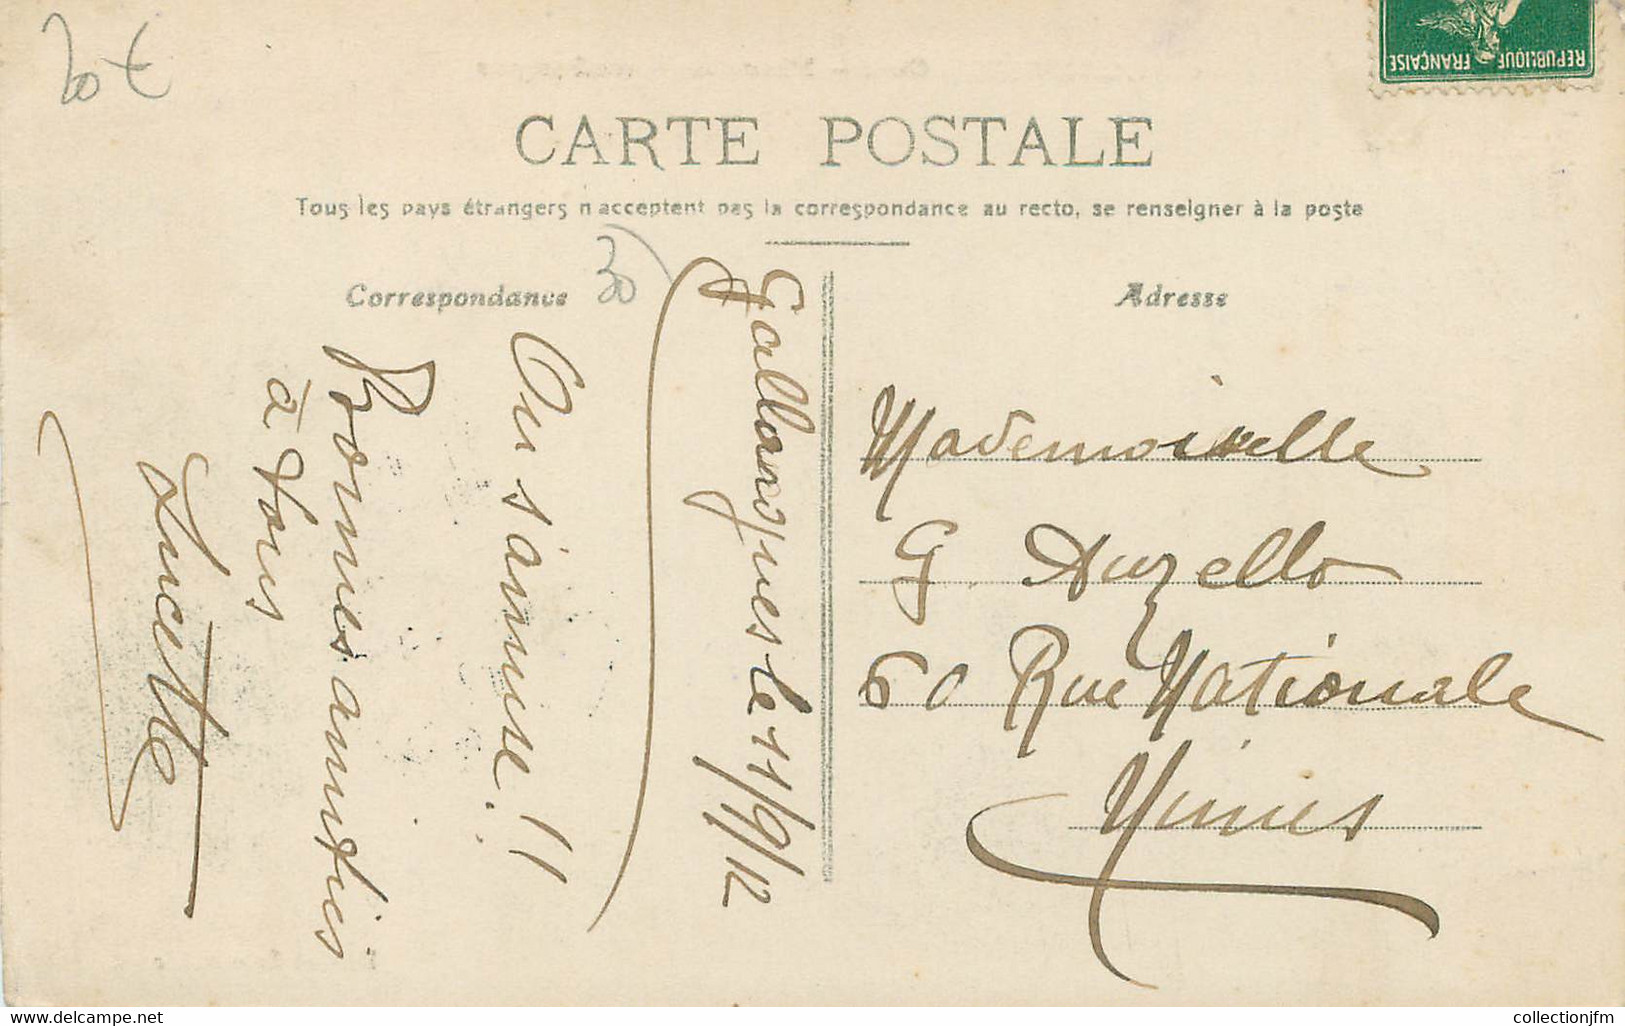 20 €
REPUBLIQUE FRANÇAISE
CARTE POSTALE
Tous les pays étrangers n'acceptent pas la correspondance au recto, se renseigner à la poste
Correspondance
30
Adresse
Gallargues le 11/9/12
On s'amuse!!
Bonnes amitiés
à tous
Lucette
Mademoiselle
G. Auzello
60 Rue Nationale
Nimes
www.delcampe.net
collectionjfm